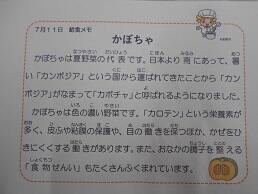 ７月１１日　給食メモ
かぼちゃ
かぼちゃは夏野菜の代表です。日本より南にあって、暑
い「カンボジア」という国から運ばれてきたことから「カン
ボジア」がなまって「カボチャ」と呼ばれるようになりました。
かぼちゃは色の濃い野菜です。「カロテン」という栄養素が
多く、皮ふや粘膜の保護や、目の働きを保つほか、かぜをひ
きにくくする働きがあります。また、おなかの調子を整える
「食物せんい」もたくさんふくまれています。